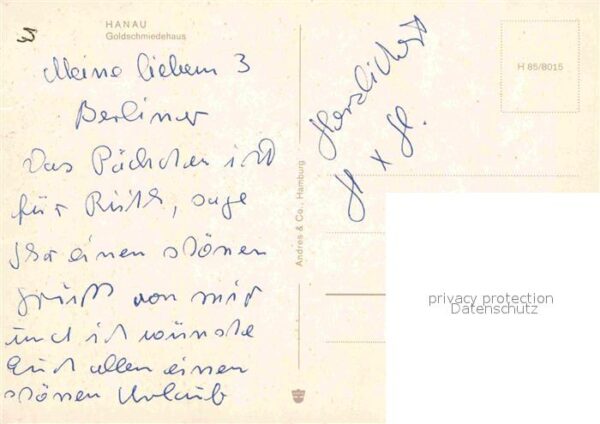 HANAU
Goldschmiedehaus
Meine lieben 3
Berliner
Das Päckchen ist
für Ruth, sage
Ihr einen schönen
Gruß von mir
und ich wünsche
Euch allen einen
schönen Urlaub
Herzlichst
H + H.
Andres & Co., Hamburg
H 85/8015
privacy protection
Datenschutz